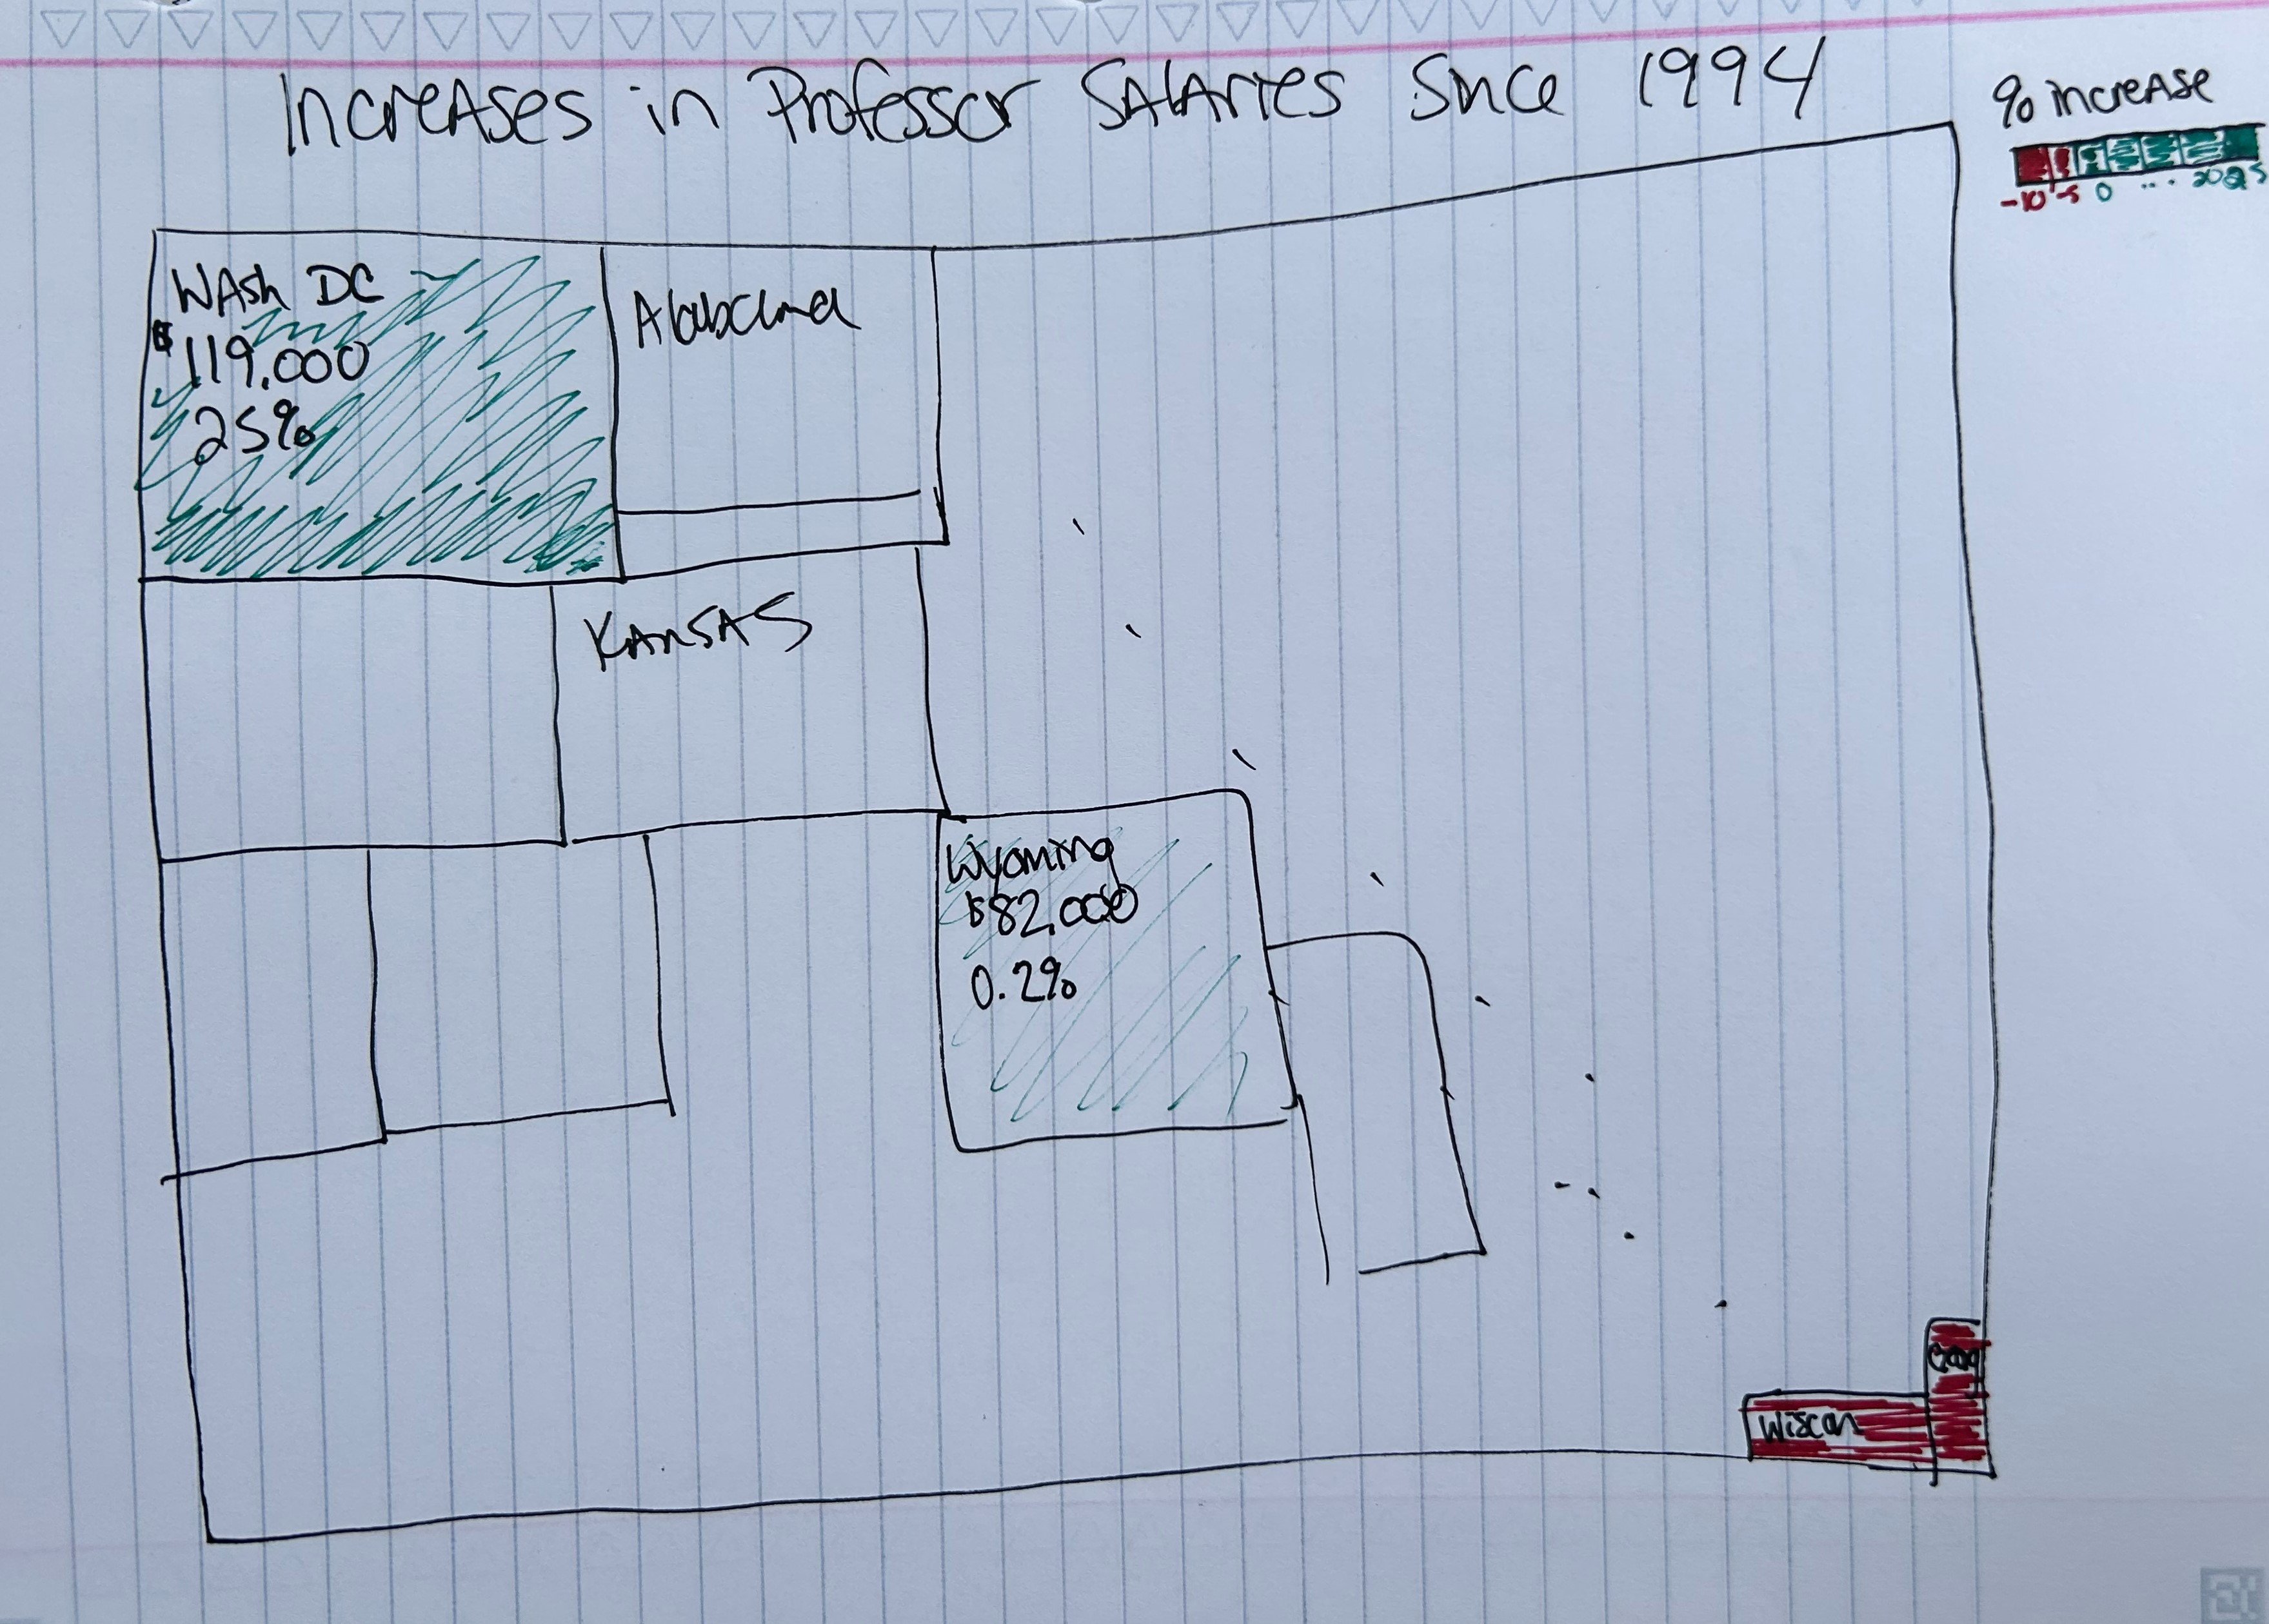 Increases in Professor Salaries Since 1994
% increase
-10 -5 0 ... 20 25
Wash DC
$119,000
25%
Alabama
Kansas
Wyoming
$82,000
0.2%
Wiscon